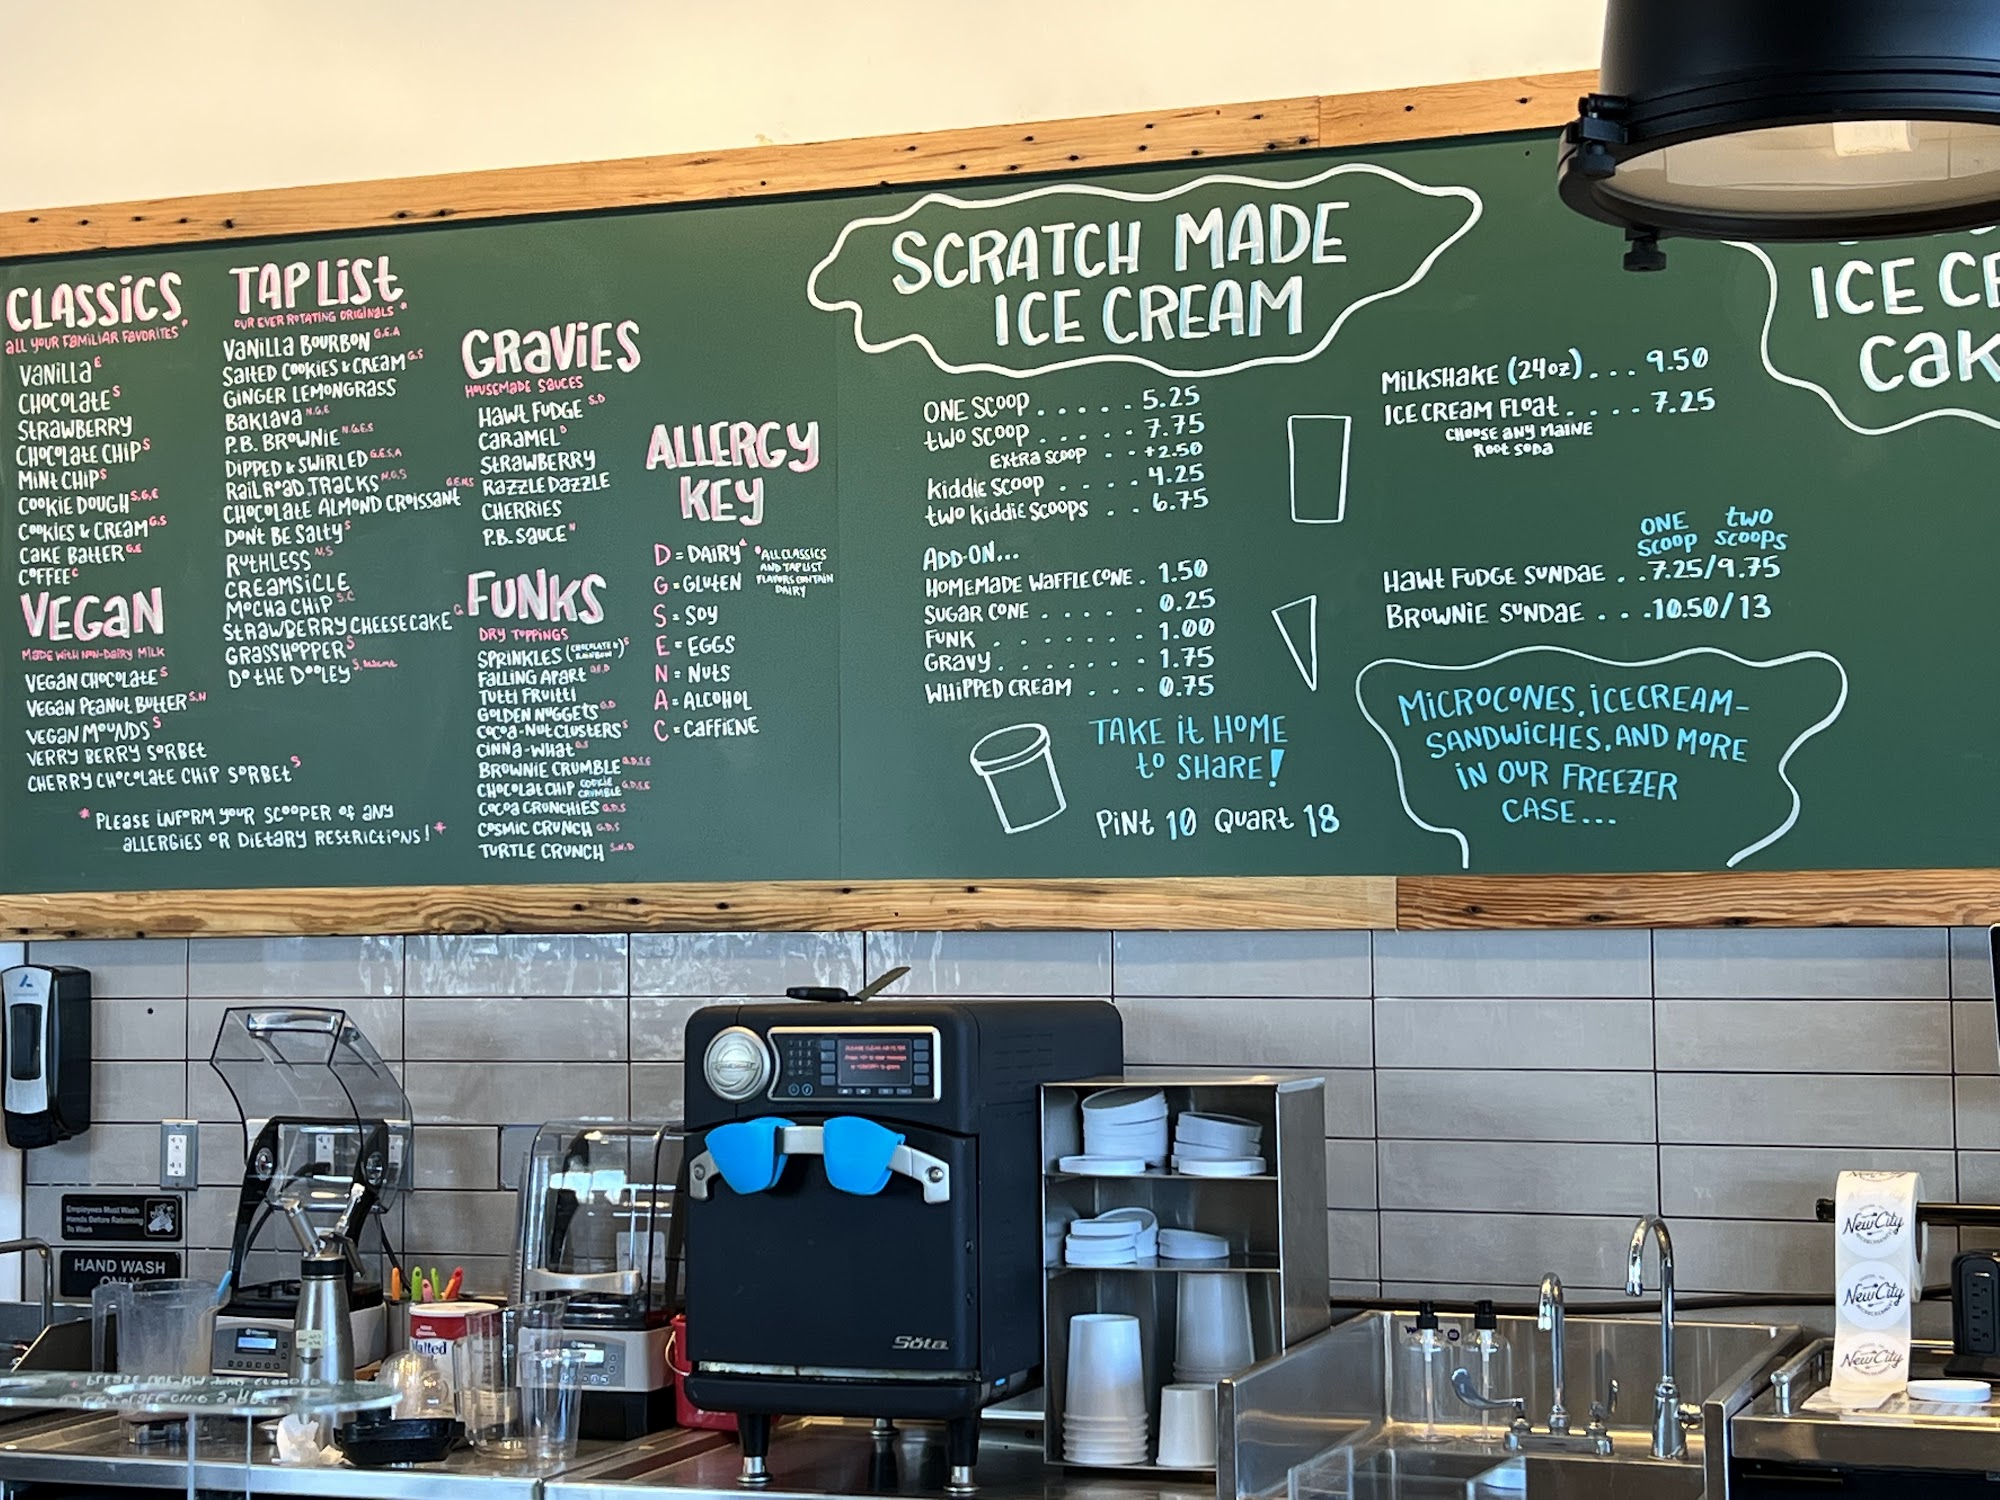 CLASSICS
ALL YOUR FAMILIAR FAVORITES*
VANILLA E
CHOCOLATE S
STRAWBERRY
CHOCOLATE CHIP S
MINT CHIP S
COOKIE DOUGH S,G,E
COOKIES & CREAM G,S
CAKE BATTER G,E
COFFEE C
VEGAN
MADE WITH NON-DAIRY MILK
VEGAN CHOCOLATE S
VEGAN PEANUT BUTTER S,N
VEGAN MOUNDS S
VERRY BERRY SORBET
CHERRY CHOCOLATE CHIP SORBET S
* PLEASE INFORM YOUR SCOOPER OF ANY
ALLERGIES OR DIETARY RESTRICTIONS! *
TAP LIST
OUR EVER ROTATING ORIGINALS *
VANILLA BOURBON G,E,A
SALTED COOKIES & CREAM G,S
GINGER LEMONGRASS
BAKLAVA N,G,E
P.B. BROWNIE N,G,E,S
DIPPED & SWIRLED G,E,S,A
RAILROAD TRACKS N,G,S
CHOCOLATE ALMOND CROISSANT G,E,N,S
DON'T BE SALTY S
RUTHLESS N,S
CREAMSICLE
MOCHA CHIP S,C
STRAWBERRY CHEESECAKE G
GRASSHOPPER S
DO THE DOOLEY S
GRAVIES
HOUSEMADE SAUCES
HAWT FUDGE S,D
CARAMEL D
STRAWBERRY
RAZZLE DAZZLE
CHERRIES
P.B. SAUCE N
FUNKS
DRY TOPPINGS
SPRINKLES (CHOCOLATE & RAINBOW) S
FALLING APART
TUTTI FRUITTI
GOLDEN NUGGETS G,D
COCOA-NUT CLUSTERS S
CINNA-WHAT
BROWNIE CRUMBLE G,D,S,E
CHOCOLATE CHIP COOKIE CRUMBLE G,D,S,E
COCOA CRUNCHIES G,D,S
COSMIC CRUNCH G,D,S
TURTLE CRUNCH S,N,D
ALLERGY
KEY
D = DAIRY*
G = GLUTEN
S = SOY
E = EGGS
N = NUTS
A = ALCOHOL
C = CAFFIENE
*ALL CLASSICS
AND TAP LIST
FLAVORS CONTAIN
DAIRY
SCRATCH MADE
ICE CREAM
ONE SCOOP . . . . . 5.25
TWO SCOOP . . . . . 7.75
EXTRA SCOOP . . +2.50
KIDDIE SCOOP . . . . 4.25
TWO KIDDIE SCOOPS . . 6.75
ADD-ON...
HOMEMADE WAFFLE CONE . 1.50
SUGAR CONE . . . . . 0.25
FUNK . . . . . . . 1.00
GRAVY . . . . . . . 1.75
WHIPPED CREAM . . . 0.75
TAKE IT HOME
TO SHARE!
PINT 10 QUART 18
MILKSHAKE (24oz) . . . 9.50
ICE CREAM FLOAT . . . . 7.25
CHOOSE ANY MAINE
ROOT SODA
ONE TWO
SCOOP SCOOPS
HAWT FUDGE SUNDAE . . 7.25/9.75
BROWNIE SUNDAE . . . 10.50/13
MICROCONES, ICECREAM-
SANDWICHES, AND MORE
IN OUR FREEZER
CASE...
ICE CR
CAK
Employees Must Wash
Hands Before Returning
To Work
HAND WASH
ONLY
Malted
Söta
New City
New City
New City